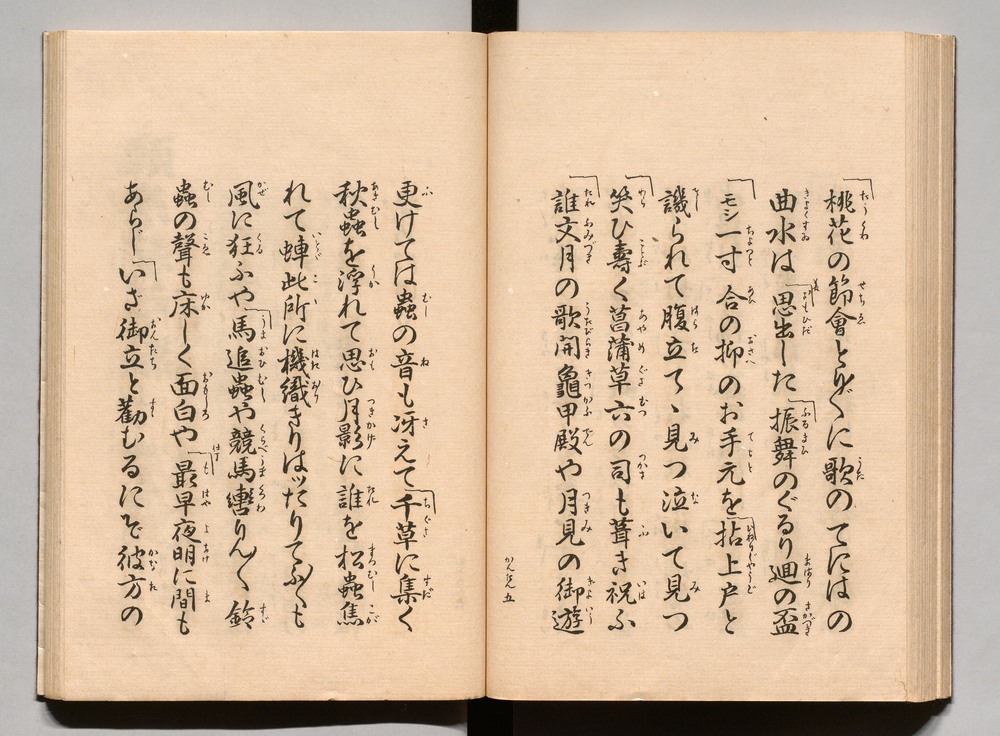 桃花の節會とり〴〵に歌のてにはの
曲水は思出した振舞のぐるり廻の盃
モシ一寸合の抑のお手元を拈上戸と
譏られて腹立てゝ見つ泣いて見つ
笑ひ壽く菖蒲草六の司も葺き祝ふ
誰文月の歌開龜甲殿や月見の御遊
かん先 五
更けては蟲の音も冴えて千草に集く
秋蟲を浮れて思ひ月影に誰を松蟲焦
れて 此所に機織きりはたりてふ〳〵も
風に狂ふや馬追蟲や競馬轡りん〳〵鈴
蟲の聲も床しく面白や最早夜明に間も
あらじいざ御立と勸むるにぞ彼方の